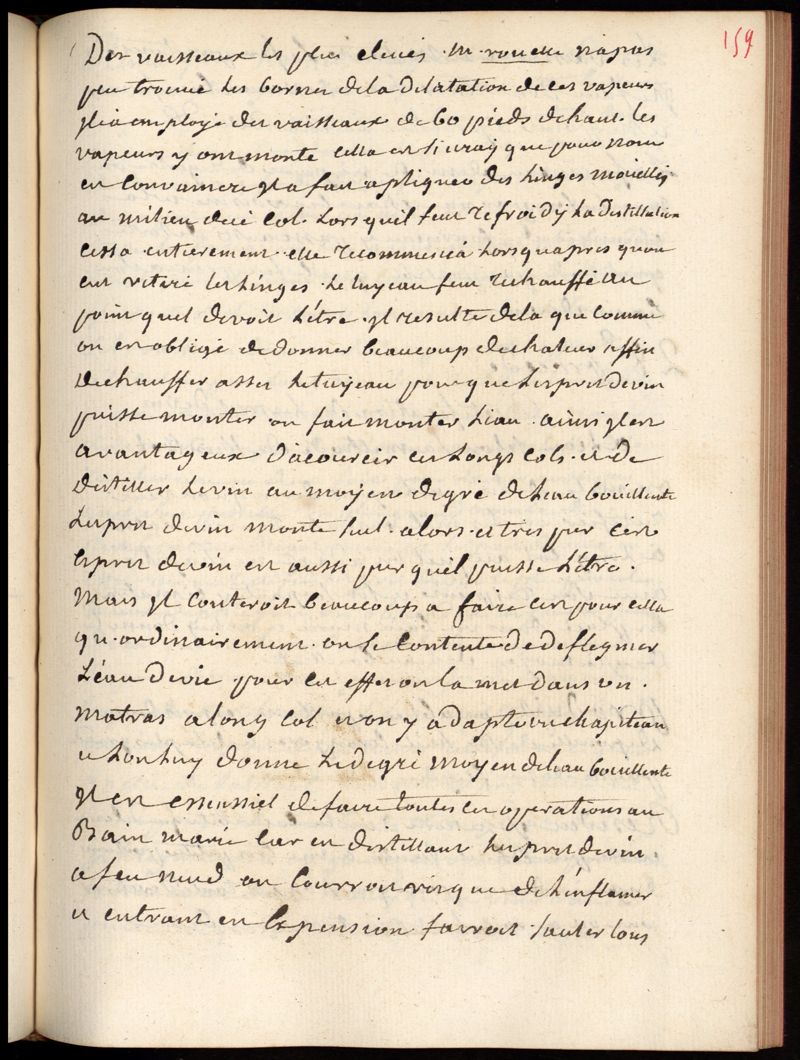 159
Des vaisseaux les plus elevés. M. rouelle n'a pas
peu trouvé les bornes de la dilatation de ces vapeurs
Il a employé des vaisseaux de 60 pieds de haut. les
vapeurs y ont monté cella est si vray que pour nous
en convaincre Il a fait apliquer des linges mouillés
au milieu de ce Col. Lorsquil feut refroidÿ La Distillation
cessa entierement. elle recommencéa lorsqu'apres quon
eut retiré les linges. le tuyeau feut rechauffé au
point quel devoit L'être. Il resulte de la que comme
on en obligé de donner beaucoup de chaleur affin
Dechauffer asses le tuyeau pour que Lesprit de vin
puisse monter on fait monter L'eau. ainsi Il est
avantageux d'acourcir ces Longs Cols. et de
Distiller Le vin au moyen degré de L'eau bouillente
Lesprit de vin monte seul. alors. et tres pur cest
Esprit de vin est aussi pur qu'il puisse L'être.
Mais Il Couteroit beaucoup a faire cest pour cella
qu.ordinairement. on se contente de deflegmer
L'éau de vie pour cet effet on la met dans un.
Matras a long Col et on y adapte un chapiteau
et Lon Luy donne Le degré moyen de L'eau bouillente
Il est essensiel de faire toutes ces operations au
Bain marie Car en distillant Lesprit de vin.
a feu nud on Courroit risque de L'inflamer
et entrant en Expension fairoit sauter tous